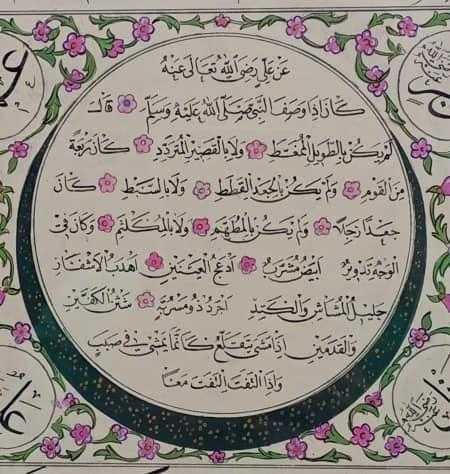 عن علي رضي الله تعالى عنه
كان اذا وصف النبي صلى الله عليه وسلم قال
لم يكن بالطويل الممغط ولا بالقصير المتردد كان ربعة
من القوم ولم يكن بالجعد القطط ولا بالسبط كان
جعدا رجلا ولم يكن بالمطهم ولا بالمكلثم وكان في
الوجه تدوير ابيض مشرب ادعج العينين اهدب الاشفار
جليل المشاش والكتد اجرد ذو مسربة شثن الكفين
والقدمين اذا مشى تقلع كانما يمشي في صبب
واذا التفت التفت معا